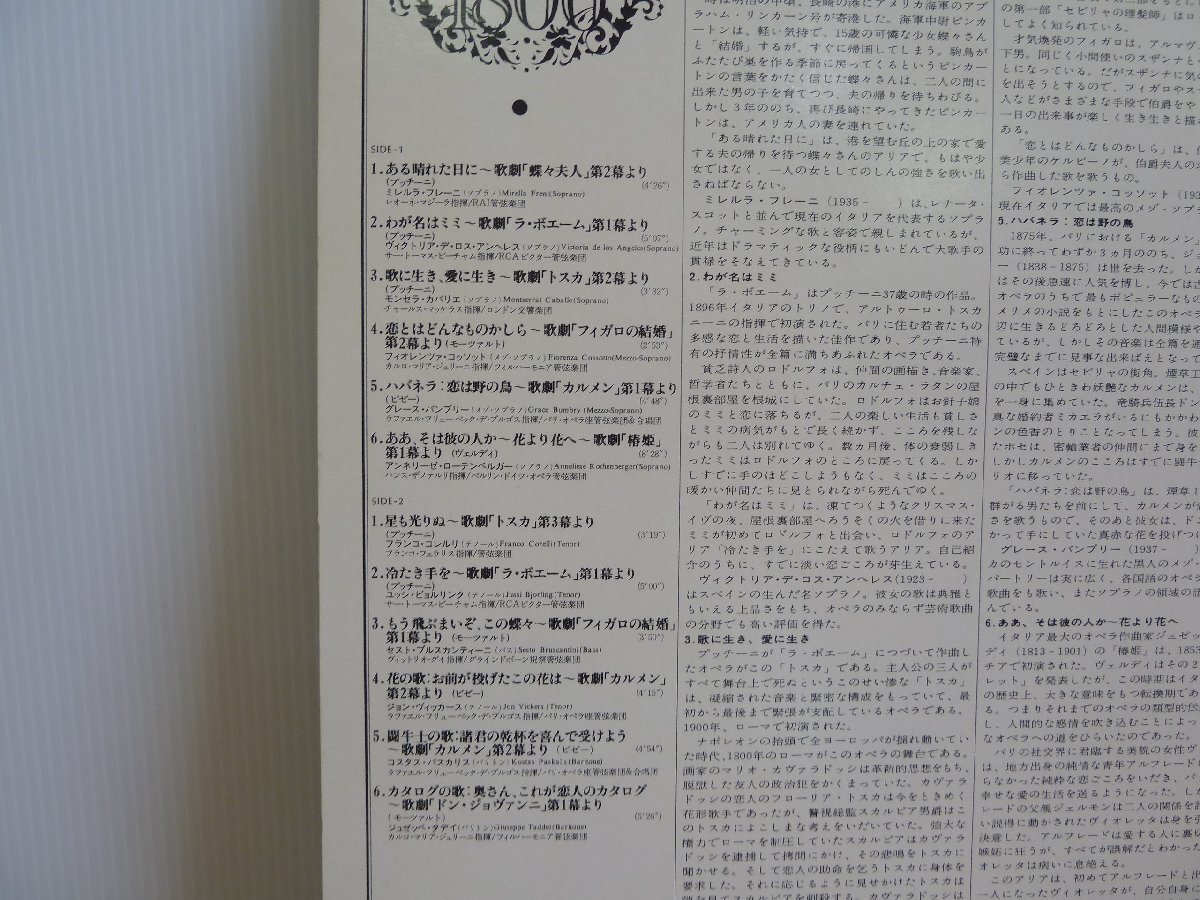 1800
SIDE-1
1. ある晴れた日に～歌劇「蝶々夫人」第2幕より
(プッチーニ) (4'26")
ミレルラ・フレーニ(ソプラノ) Mirella Freni(Soprano)
レオーネ・マジーラ指揮/RAI管弦楽団
2. わが名はミミ～歌劇「ラ・ボエーム」第1幕より
(プッチーニ) (5'07")
ヴィクトリア・デ・ロス・アンヘレス(ソプラノ) Victoria de los Angeles(Soprano)
サー・トーマス・ビーチャム指揮/RCAビクター管弦楽団
3. 歌に生き、愛に生き～歌劇「トスカ」第2幕より
(プッチーニ) (3'32")
モンセラ・カバリエ(ソプラノ) Montserrat Caballe(Soprano)
チャールス・マッケラス指揮/ロンドン交響楽団
4. 恋とはどんなものかしら～歌劇「フィガロの結婚」
第2幕より (モーツァルト) (2'53")
フィオレンツァ・コッソット(メゾ・ソプラノ) Fiorenza Cossotto(Mezzo-Soprano)
カルロ・マリア・ジュリーニ指揮/フィルハーモニア管弦楽団
5. ハバネラ：恋は野の鳥～歌劇「カルメン」第1幕より
(ビゼー) (4'48")
グレース・バンブリー(メゾ・ソプラノ) Grace Bumbry(Mezzo-Soprano)
ラファエル・フリューベック・デ・ブルゴス指揮/パリ・オペラ座管弦楽団&合唱団
6. ああ、そは彼の人か～花より花へ～歌劇「椿姫」
第1幕より (ヴェルディ) (8'28")
アンネリーゼ・ローテンベルガー(ソプラノ) Anneliese Rothenberger(Soprano)
ハンス・ザノテルリ指揮/ベルリン・ドイツ・オペラ管弦楽団
SIDE-2
1. 星も光りぬ～歌劇「トスカ」第3幕より
(プッチーニ) (3'19")
フランコ・コレルリ(テノール) Franco Corelli(Tenor)
フランコ・フェラリス指揮/管弦楽団
2. 冷たき手を～歌劇「ラ・ボエーム」第1幕より
(プッチーニ) (5'00")
ユッシ・ビョルリンク(テノール) Jussi Bjorling(Tenor)
サー・トーマス・ビーチャム指揮/RCAビクター管弦楽団
3. もう飛ぶまいぞ、この蝶々～歌劇「フィガロの結婚」
第1幕より (モーツァルト) (3'53")
セスト・ブルスカンティーニ(バス) Sesto Bruscantini(Bass)
ヴィットリオ・グイ指揮/グラインドボーン祝祭管弦楽団
4. 花の歌：お前が投げたこの花は～歌劇「カルメン」
第2幕より (ビゼー) (4'15")
ジョン・ヴィッカース(テノール) Jon Vickers(Tenor)
ラファエル・フリューベック・デ・ブルゴス指揮/パリ・オペラ座管弦楽団
5. 闘牛士の歌：諸君の乾杯を喜んで受けよう
～歌劇「カルメン」第2幕より (ビゼー) (4'54")
コスタス・パスカリス(バリトン) Kostas Paskalis(Baritone)
ラファエル・フリューベック・デ・ブルゴス指揮/パリ・オペラ座管弦楽団&合唱団
6. カタログの歌：奥さん、これが恋人のカタログ
～歌劇「ドン・ジョヴァンニ」第1幕より
(モーツァルト) (5'26")
ジュゼッペ・タデイ(バリトン) Giuseppe Taddei(Baritone)
カルロ・マリア・ジュリーニ指揮/フィルハーモニア管弦楽団
時は明治の中頃、長崎の港にアメリカ海軍のアブ
ラハム・リンカーン号が寄港した。海軍中尉ピンカ
ートンは、軽い気持で、15歳の可憐な少女蝶々さん
と「結婚」するが、すぐに帰国してしまう。駒鳥が
ふたたび巣を作る季節に戻ってくるというピンカー
トンの言葉をかたく信じた蝶々さんは、二人の間に
出来た男の子を育てつつ、夫の帰りを待ちわびる。
しかし3年ののち、再び長崎にやってきたピンカー
トンは、アメリカ人の妻を連れていた。
「ある晴れた日に」は、港を望む丘の上の家で愛
する夫の帰りを待つ蝶々さんのアリアで、もはや少
女ではなく、一人の女としてのしんの強さを歌い出
さねばならない。
ミレルラ・フレーニ(1935- )は、レナータ・
スコットと並んで現在のイタリアを代表するソプラ
ノ。チャーミングな歌と容姿で親しまれているが、
近年はドラマティックな役柄にもいどんで大歌手の
貫禄をそなえてきている。
2. わが名はミミ
「ラ・ボエーム」はプッチーニ37歳の時の作品。
1896年イタリアのトリノで、アルトゥーロ・トスカ
ニーニの指揮で初演された。パリに住む若者たちの
多感な恋と生活を描いた佳作であり、プッチーニ特
有の抒情性が全篇に満ちあふれたオペラである。
貧乏詩人のロドルフォは、仲間の画描き、音楽家、
哲学者たちとともに、パリのカルチェ・ラタンの屋
根裏部屋を根城にしていた。ロドルフォはお針子娘
のミミと恋に落ちるが、二人の楽しい生活も貧しさ
とミミの病気がもとで長く続かず、こころを残しな
がらも二人は別れてゆく。数ヵ月後、体の衰弱しき
ったミミはロドルフォのところに戻ってくる。しか
しすでに手のほどこしようもなく、ミミはこころの
暖かい仲間たちに見とられながら死んでゆく。
「わが名はミミ」は、凍てつくようなクリスマス・
イヴの夜、屋根裏部屋へろうそくの火を借りに来た
ミミが初めてロドルフォと出会い、ロドルフォのア
リア「冷たき手を」にこたえて歌うアリア。自己紹
介のうちに、すでに淡い恋ごころが芽生えている。
ヴィクトリア・デ・ロス・アンヘレス(1923- )
はスペインの生んだ名ソプラノ。彼女の歌は典雅と
もいえる上品さをもち、オペラのみならず芸術歌曲
の分野でも高い評価を得た。
3. 歌に生き、愛に生き
プッチーニが「ラ・ボエーム」につづいて作曲し
たオペラがこの「トスカ」である。主人公の三人が
すべて舞台上で死ぬというこのせい惨な「トスカ」
は、凝縮された音楽と緊密な構成をもっていて、最
初から最後まで緊張が支配しているオペラである。
1900年、ローマで初演された。
ナポレオンの抬頭で全ヨーロッパが揺れ動いてい
た時代、1800年のローマがこのオペラの舞台である。
画家のマリオ・カヴァラドッシは革新的思想をもち、
脱獄した友人の政治犯をかくまっていた。カヴァラ
ドッシの恋人のフローリア・トスカは今をときめく
花形歌手であったが、警視総監スカルピア男爵はこ
のトスカによこしまな考えをいだいていた。強大な
権力でローマを制圧していたスカルピアはカヴァラ
ドッシを逮捕して拷問にかけ、その悲鳴をトスカに
聞かせる。そして恋人の助命を乞うトスカに身体を
要求した。それに応じるように見せかけたトスカは
の第一部「セビリャの理髪師」はロ
してよく知られている。
才気煥発のフィガロは、アルマヴ
下男。同じく小間使いのスザンナと
とになっている。だがスザンナに気の
を出そうとするので、フィガロやスー
人などがさまざまな手段で伯爵をや
一日の出来事が楽しく生き生きと描か
ある。
「恋とはどんなものかしら」は、伯
美少年のケルビーノが、伯爵夫人の
ら作曲した歌を歌うもの。
フィオレンツァ・コッソット(193
現在イタリアでは最高のメゾ・ソプ
5. ハバネラ：恋は野の鳥
1875年、パリにおける「カルメン」
功に終ってわずか3ヵ月ののち、ジョ
ー(1838-1875)は世を去った。しか
はその後急速に人気を博し、今では
オペラのうちで最もポピュラーなもの
メリメの小説をもとにしたこのオペラ
辺に生きるどろどろとした人間模様
ているが、しかしその音楽は全篇を通
完璧なまでに見事な出来ばえとなって
スペインはセビリャの街角。煙草工
の中でもひときわ妖艶なカルメンは、
を一身に集めていた。竜騎兵伍長ドン
真な婚約者ミカエラがいるにもかかわ
ンの色香のとりことなってしまう。彼
たホセは、密輸業者の仲間にまで身を
しかしカルメンのこころはすでに闘牛
リオに移っていた。
「ハバネラ：恋は野の鳥」は、煙草工
群がる男たちを前にして、カルメンが
さを歌うもので、そのあと彼女は、ド
かって手にしていた真赤な花を投げつけ
グレース・バンブリー(1937-
カのセントルイスに生れた黒人のメゾ・
パートリーは実に広く、各国語のオペ
歌曲をも歌い、またソプラノの領域の
んでいる。
6. ああ、そは彼の人か～花より花へ
イタリア最大のオペラ作曲家ジュゼッ
ディ(1813-1901)の「椿姫」は、1853
チアで初演された。ヴェルディはその2
レット」を発表したが、この時期はイタ
の歴史上、大きな意味をもつ転換期であ
る。つまりそれまでのオペラの類型的伝
し、人間的な感情を吹き込むことによっ
なオペラへの道をひらいたのであった。
パリの社交界に君臨する美貌の女性ヴ
は、地方出身の純情な青年アルフレード
らなかった純粋な恋ごころをいだき、パ
幸せな愛の生活を送るようになった。しか
レードの父親ジェルモンは二人の関係を
い説得に動かされたヴィオレッタは身を
決意した。アルフレードは愛する人に裏切
嫉妬に狂うが、すべてが誤解だとわかった
オレッタは病いに息絶える。
このアリアは、初めてアルフレードと出
一人になったヴィオレッタが、自分自身に